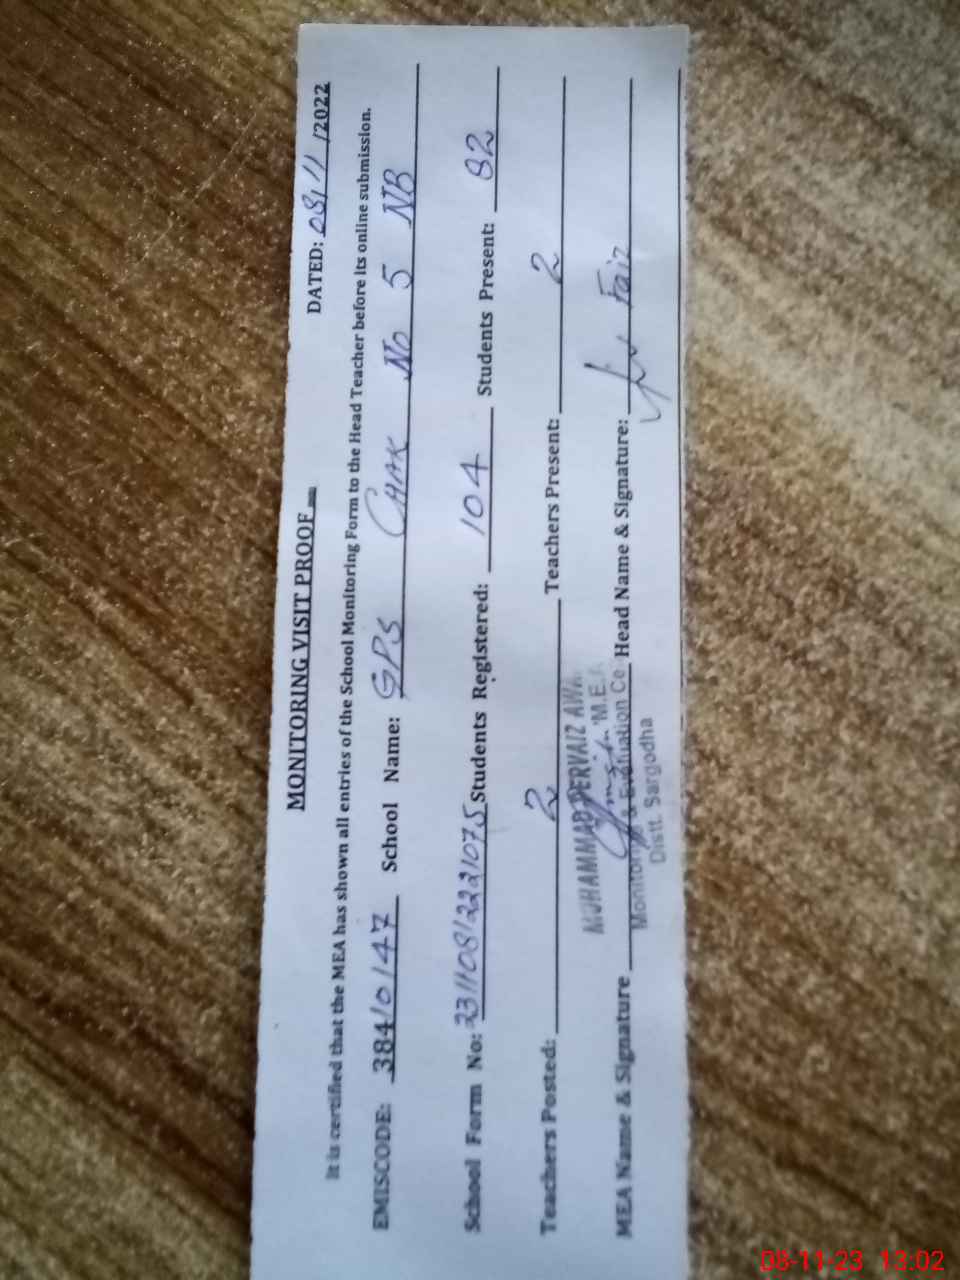 MONITORING VISIT PROOF
DATED: 08/11/2022
It is certified that the MEA has shown all entries of the School Monitoring Form to the Head Teacher before its online submission.
EMISCODE: 38410147 School Name: GPS CHAK No 5 NB
School Form No: 231108122221075 Students Registered: 104 Students Present: 82
Teachers Posted: 2 Teachers Present: 2
MUHAMMAD PERVAIZ
M.E.A
MEA Name & Signature Head Name & Signature: Faiz
Monitoring & Evaluation Ce
Distt. Sargodha
08-11-23 13:02